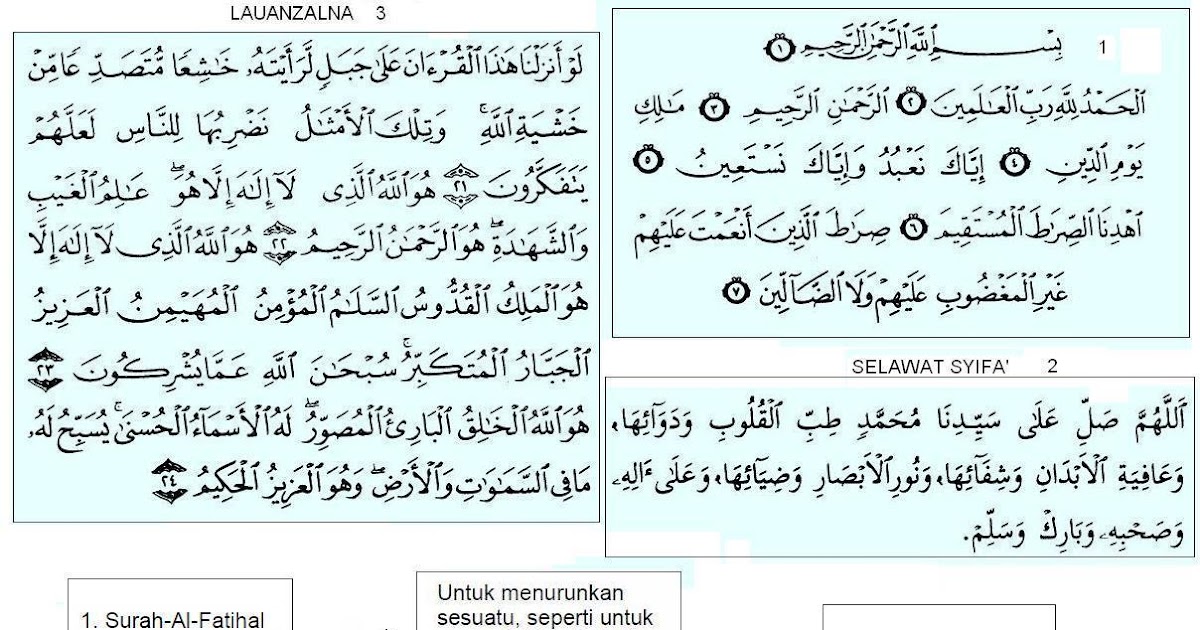 1
بِسْمِ ٱللَّهِ ٱلرَّحْمَٰنِ ٱلرَّحِيمِ ١
ٱلْحَمْدُ لِلَّهِ رَبِّ ٱلْعَٰلَمِينَ ٢ ٱلرَّحْمَٰنِ ٱلرَّحِيمِ ٣ مَٰلِكِ
يَوْمِ ٱلدِّينِ ٤ إِيَّاكَ نَعْبُدُ وَإِيَّاكَ نَسْتَعِينُ ٥
ٱهْدِنَا ٱلصِّرَٰطَ ٱلْمُسْتَقِيمَ ٦ صِرَٰطَ ٱلَّذِينَ أَنْعَمْتَ عَلَيْهِمْ
غَيْرِ ٱلْمَغْضُوبِ عَلَيْهِمْ وَلَا ٱلضَّآلِّينَ ٧
SELAWAT SYIFA' 2
ٱَللَّهُمَّ صَلِّ عَلَى سَيِّدِنَا مُحَمَّدٍ طِبِّ ٱلْقُلُوبِ وَدَوَآئِهَا،
وَعَافِيَةِ ٱلْأَبْدَانِ وَشِفَآئِهَا، وَنُورِ ٱلْأَبْصَارِ وَضِيَآئِهَا، وَعَلَى ءَالِهِۦ
وَصَحْبِهِۦ وَبَارِكْ وَسَلِّمْ.
LAUANZALNA 3
لَوْ أَنزَلْنَا هَٰذَا ٱلْقُرْءَانَ عَلَىٰ جَبَلٍ لَّرَأَيْتَهُۥ خَٰشِعًا مُّتَصَدِّعًا مِّنْ
خَشْيَةِ ٱللَّهِ ۚ وَتِلْكَ ٱلْأَمْثَٰلُ نَضْرِبُهَا لِلنَّاسِ لَعَلَّهُمْ
يَتَفَكَّرُونَ ٢١ هُوَ ٱللَّهُ ٱلَّذِى لَآ إِلَٰهَ إِلَّا هُوَ ۖ عَٰلِمُ ٱلْغَيْبِ
وَٱلشَّهَٰدَةِ ۖ هُوَ ٱلرَّحْمَٰنُ ٱلرَّحِيمُ ٢٢ هُوَ ٱللَّهُ ٱلَّذِى لَآ إِلَٰهَ إِلَّا
هُوَ ٱلْمَلِكُ ٱلْقُدُّوسُ ٱلسَّلَٰمُ ٱلْمُؤْمِنُ ٱلْمُهَيْمِنُ ٱلْعَزِيزُ
ٱلْجَبَّارُ ٱلْمُتَكَبِّرُ ۚ سُبْحَٰنَ ٱللَّهِ عَمَّا يُشْرِكُونَ ٢٣
هُوَ ٱللَّهُ ٱلْخَٰلِقُ ٱلْبَارِئُ ٱلْمُصَوِّرُ ۖ لَهُ ٱلْأَسْمَآءُ ٱلْحُسْنَىٰ ۚ يُسَبِّحُ لَهُۥ
مَا فِى ٱلسَّمَٰوَٰتِ وَٱلْأَرْضِ ۖ وَهُوَ ٱلْعَزِيزُ ٱلْحَكِيمُ ٢٤
1. Surah-Al-Fatihal
Untuk menurunkan
sesuatu, seperti untuk